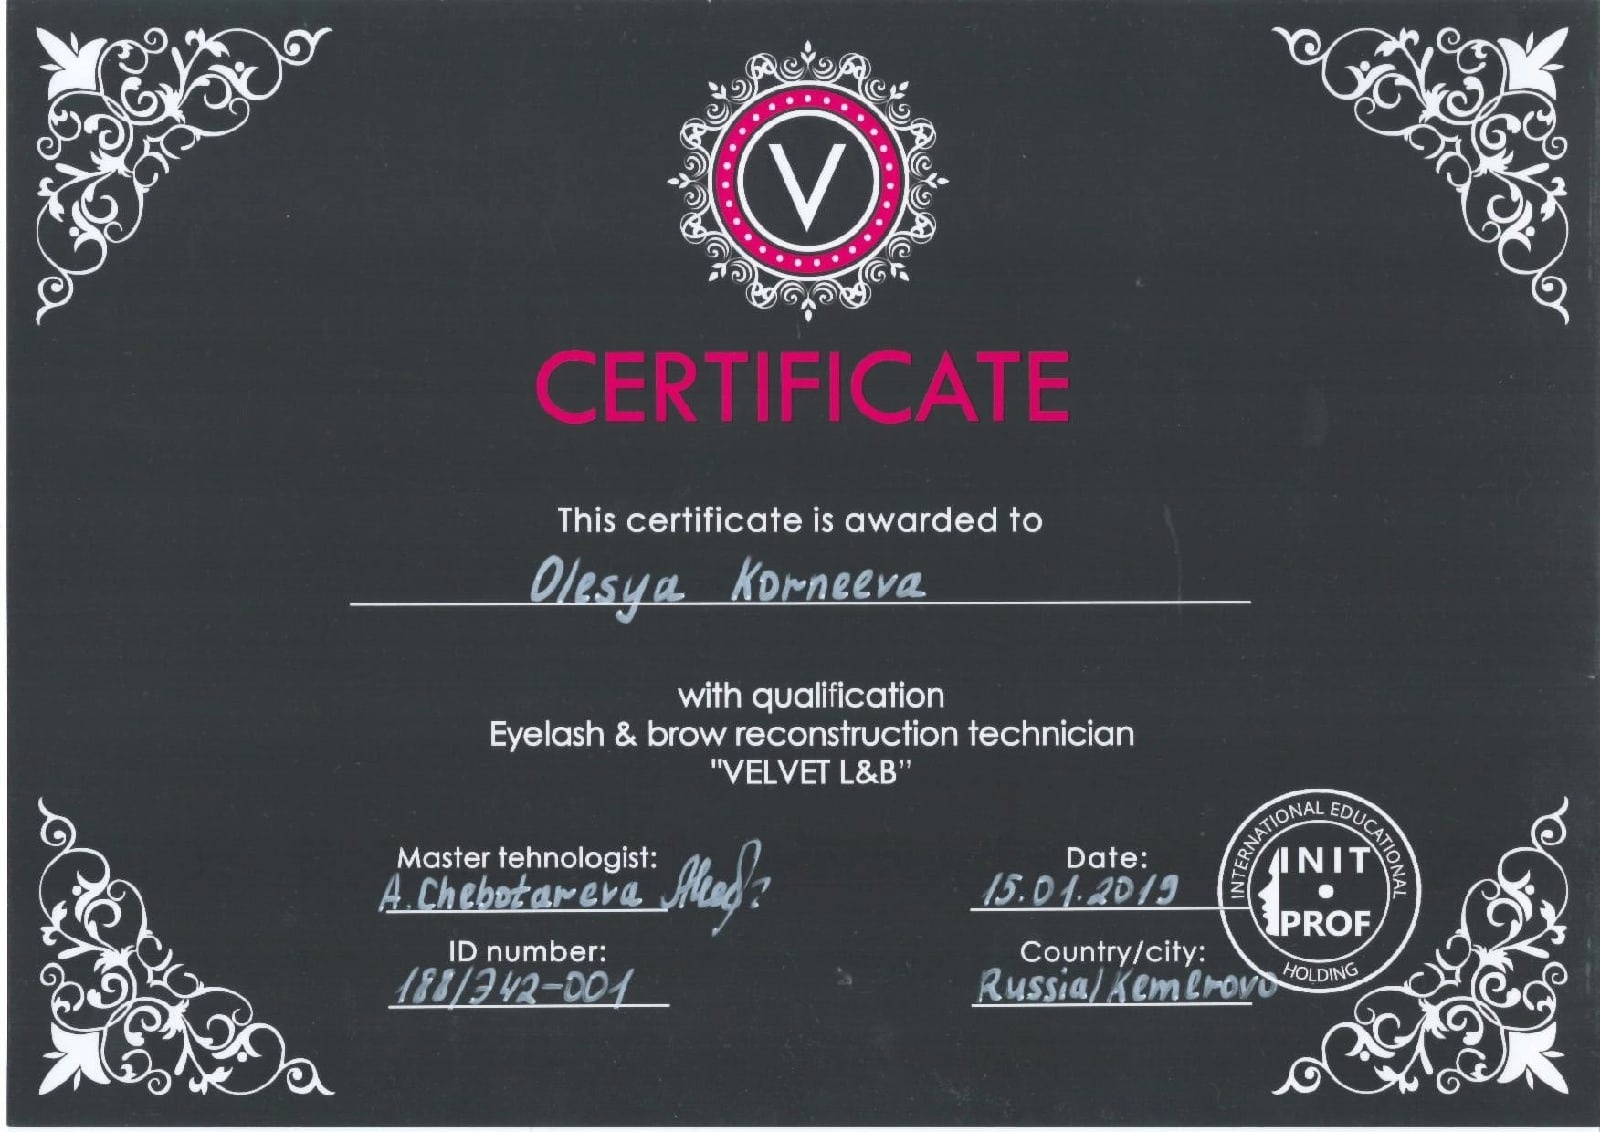 V
CERTIFICATE
This certificate is awarded to
Olesya Korneeva
with qualification
Eyelash & brow reconstruction technician
"VELVET L&B"
Master tehnologist:
A. Chebotareva
Date:
15.01.2019
ID number:
188/342-001
Country/city:
Russia/Kemerovo
INTERNATIONAL EDUCATIONAL
INIT
PROF
HOLDING